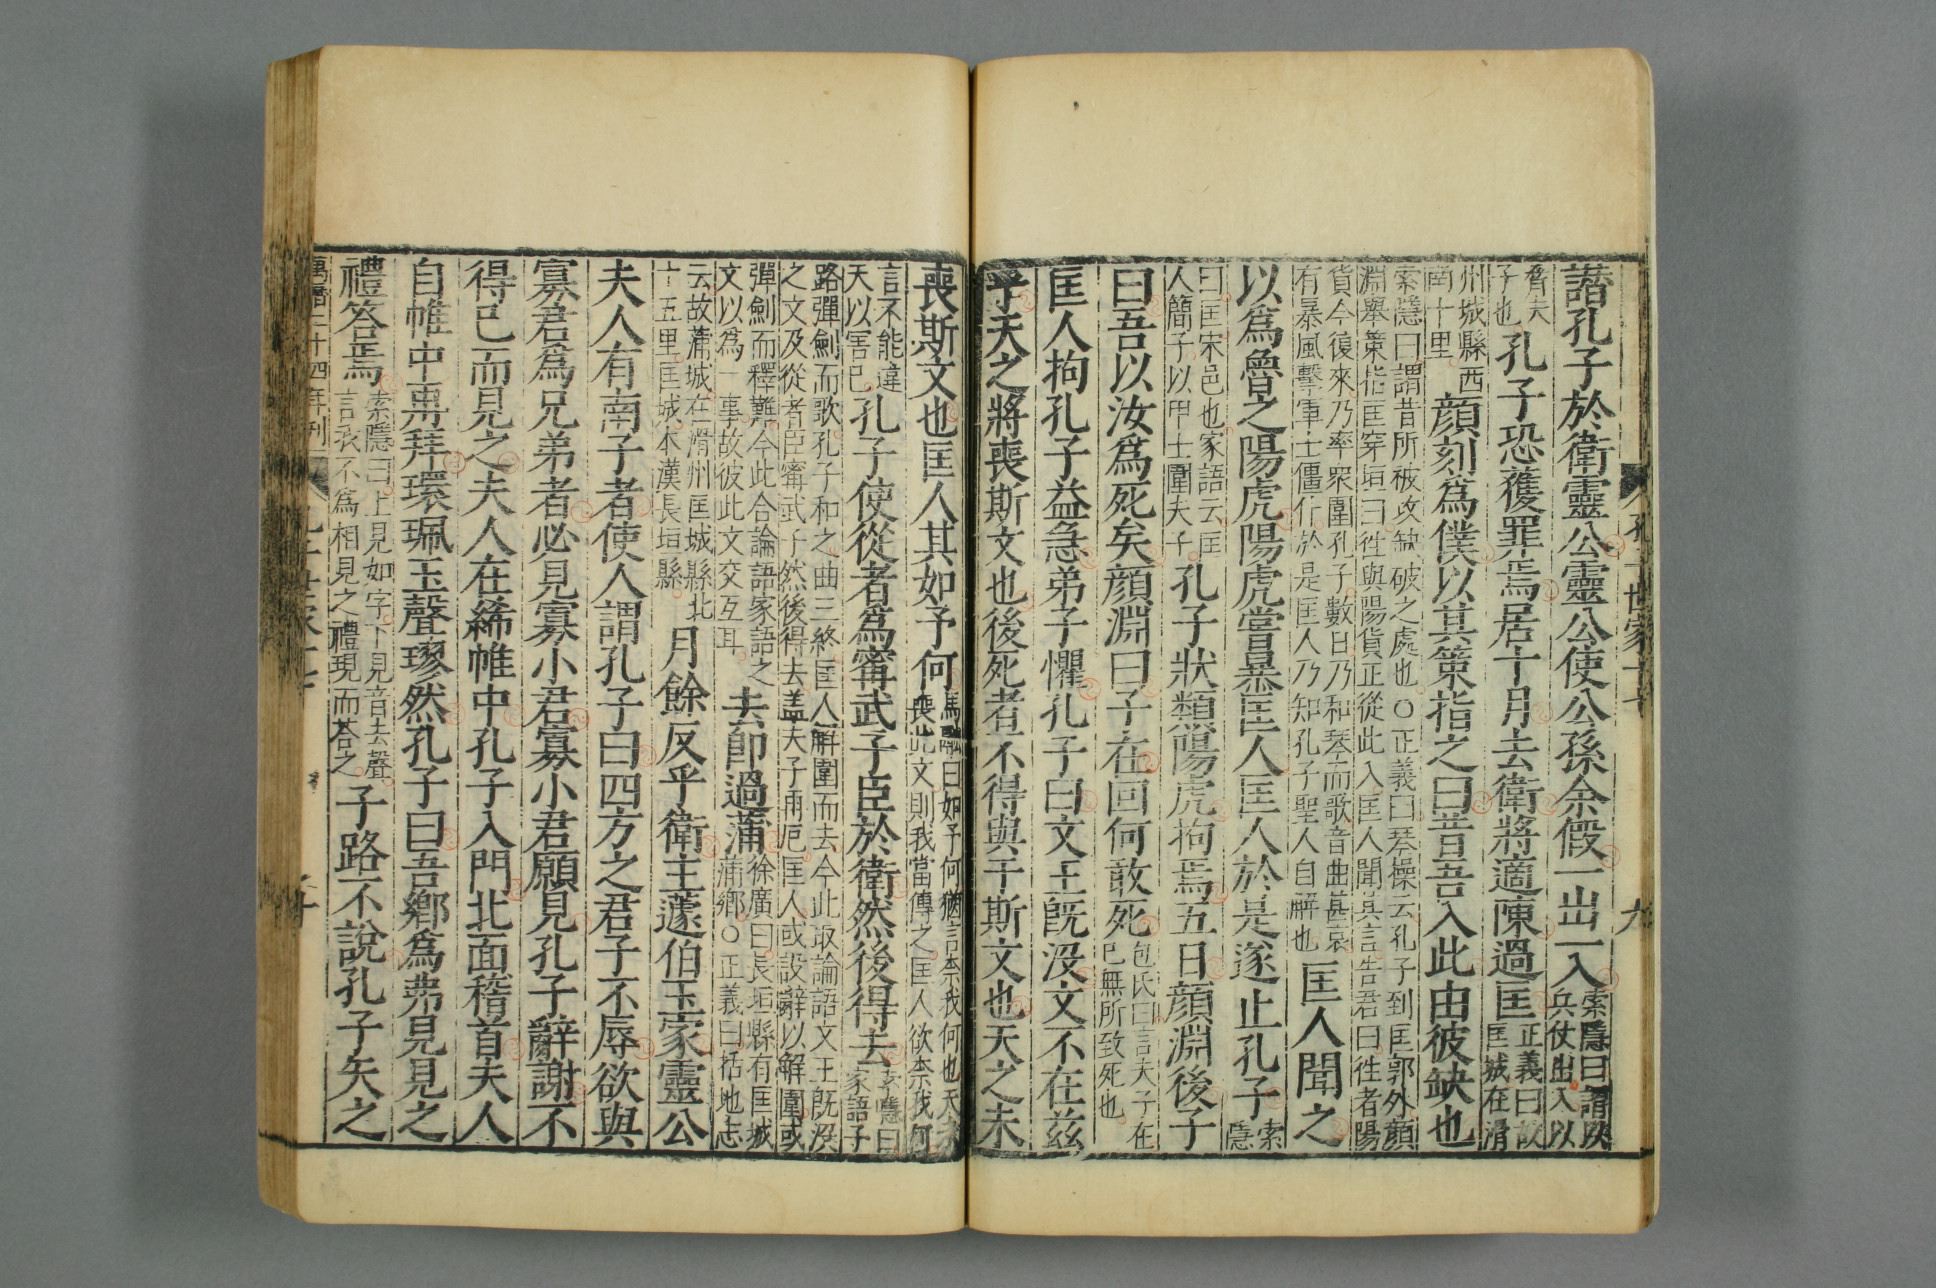 孔子世家十七 九
譖孔子於衛靈公靈公使公孫余假一出一入索隱曰謂以
兵仗出入以
脅夫
子也孔子恐獲罪焉居十月去衛將適陳過匡正義曰故
匡城在滑
州城縣西
南十里顏刻爲僕以其策指之曰昔吾入此由彼缺也
索隱曰謂昔所被攻缺破之處也○正義曰琴操云孔子到匡郭外顏
淵舉策指匡穿垣曰往與陽貨正從此入匡人聞其言告君曰往者陽
貨今復來乃率眾圍孔子數日乃和琴而歌音曲甚哀
有暴風擊軍士僵仆於是匡人乃知孔子聖人自解也匡人聞之
以爲魯之陽虎陽虎嘗暴匡人匡人於是遂止孔子索
隱
曰匡宋邑也家語云匡
人簡子以甲士圍夫子孔子狀類陽虎拘焉五日顏淵後子
曰吾以汝爲死矣顏淵曰子在回何敢死包氏曰言夫子在
已無所致死也
匡人拘孔子益急弟子懼孔子曰文王既没文不在兹
乎天之將喪斯文也後死者不得與于斯文也天之未
喪斯文也匡人其如予何馬融曰如予何猶言奈我何也天未
喪此文則我當傳之匡人欲奈我何
言不能違
天以害己孔子使從者爲甯武子臣於衛然後得去索隱曰
家語子
路彈劍而歌孔子和之曲三終匡人解圍而去今此取論語文王既没
之文及從者臣甯武子然後得去蓋夫子再厄匡人或設辭以解圍或
彈劍而釋難今此合論語家語之
文以爲一事故彼此文交互耳去即過蒲徐廣曰長垣縣有匡城
蒲鄉○正義曰括地志
云故蒲城在滑州匡城縣北
十五里匡城本漢長垣縣月餘反乎衛主蘧伯玉家靈公
夫人有南子者使人謂孔子曰四方之君子不辱欲與
寡君爲兄弟者必見寡小君寡小君願見孔子辭謝不
得已而見之夫人在絺帷中孔子入門北面稽首夫人
自帷中再拜環珮玉聲璆然孔子曰吾鄉爲弗見見之
禮答焉索隱曰上見如字下見音去聲
言我不爲相見之禮現而荅之子路不說孔子矢之
萬曆二十四年刊 孔子世家十七